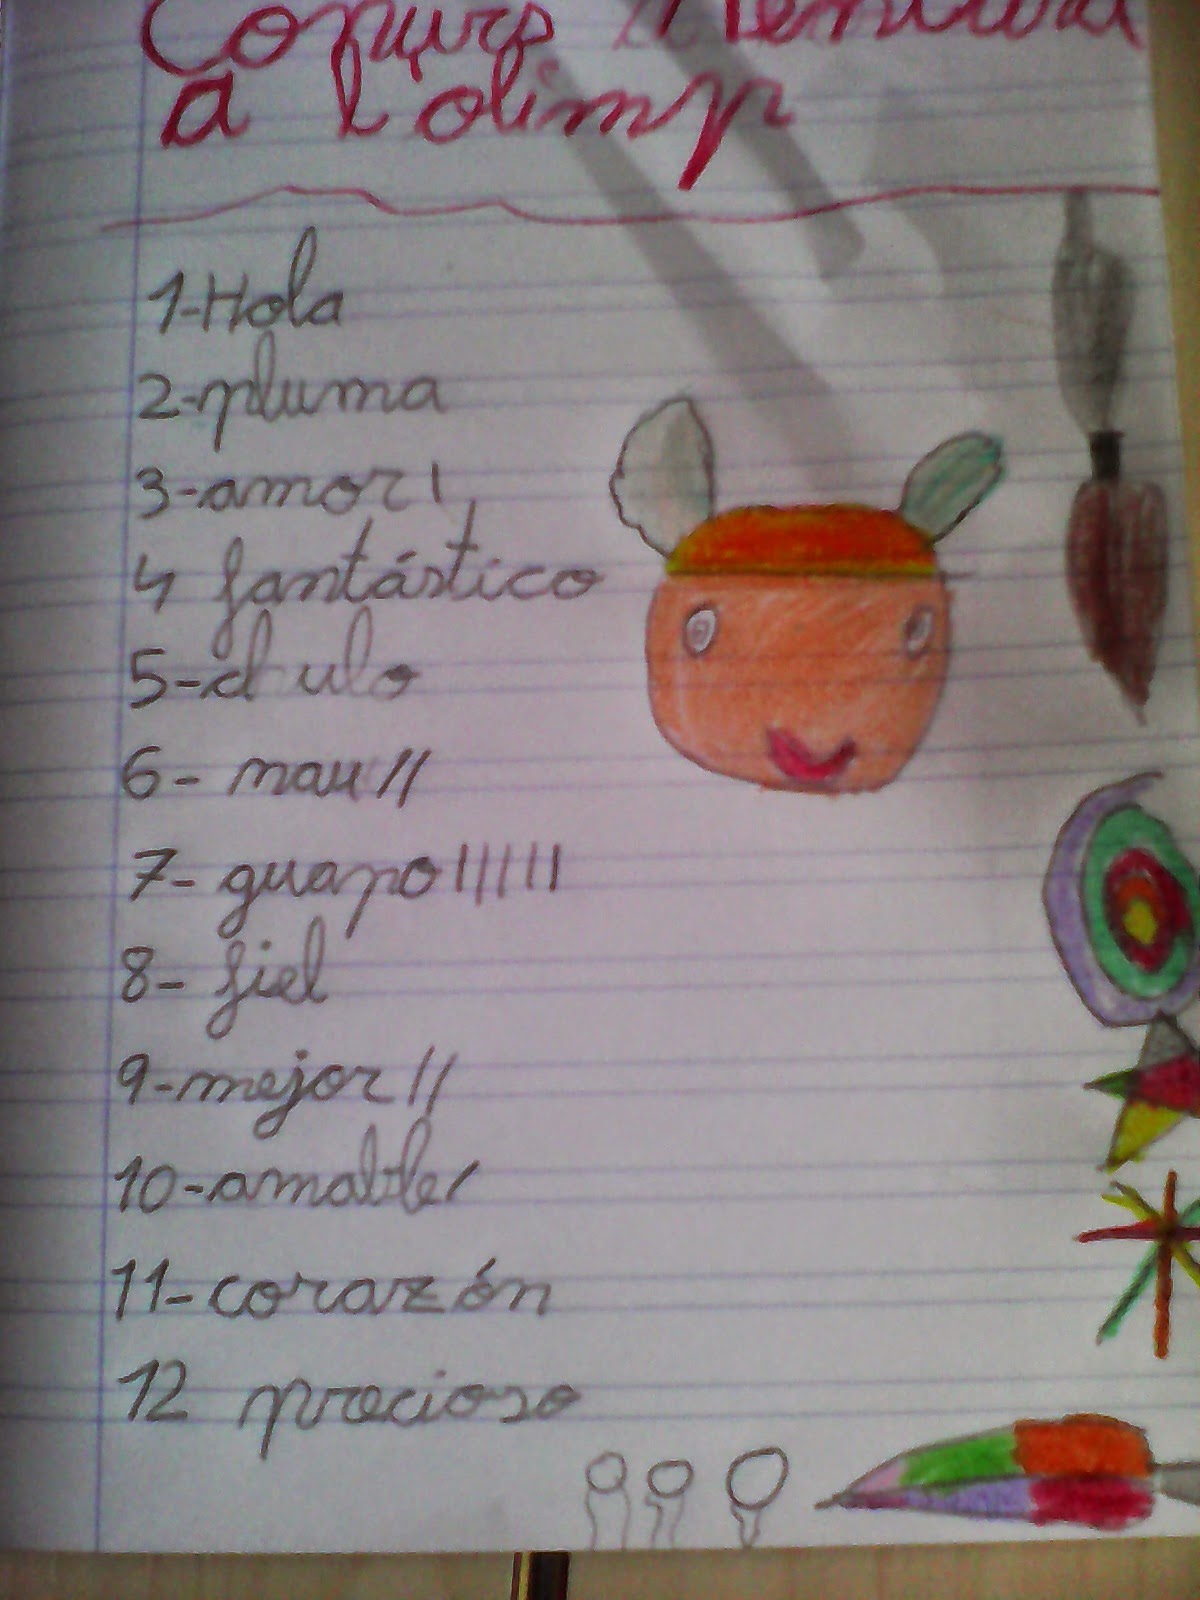 a l'olimp
1-Hola
2-pluma
3-amor |
4 fantástico
5-chulo
6- mau //
7- guapo |||||
8- fiel
9-mejor //
10-amable /
11-corazón
12 precioso